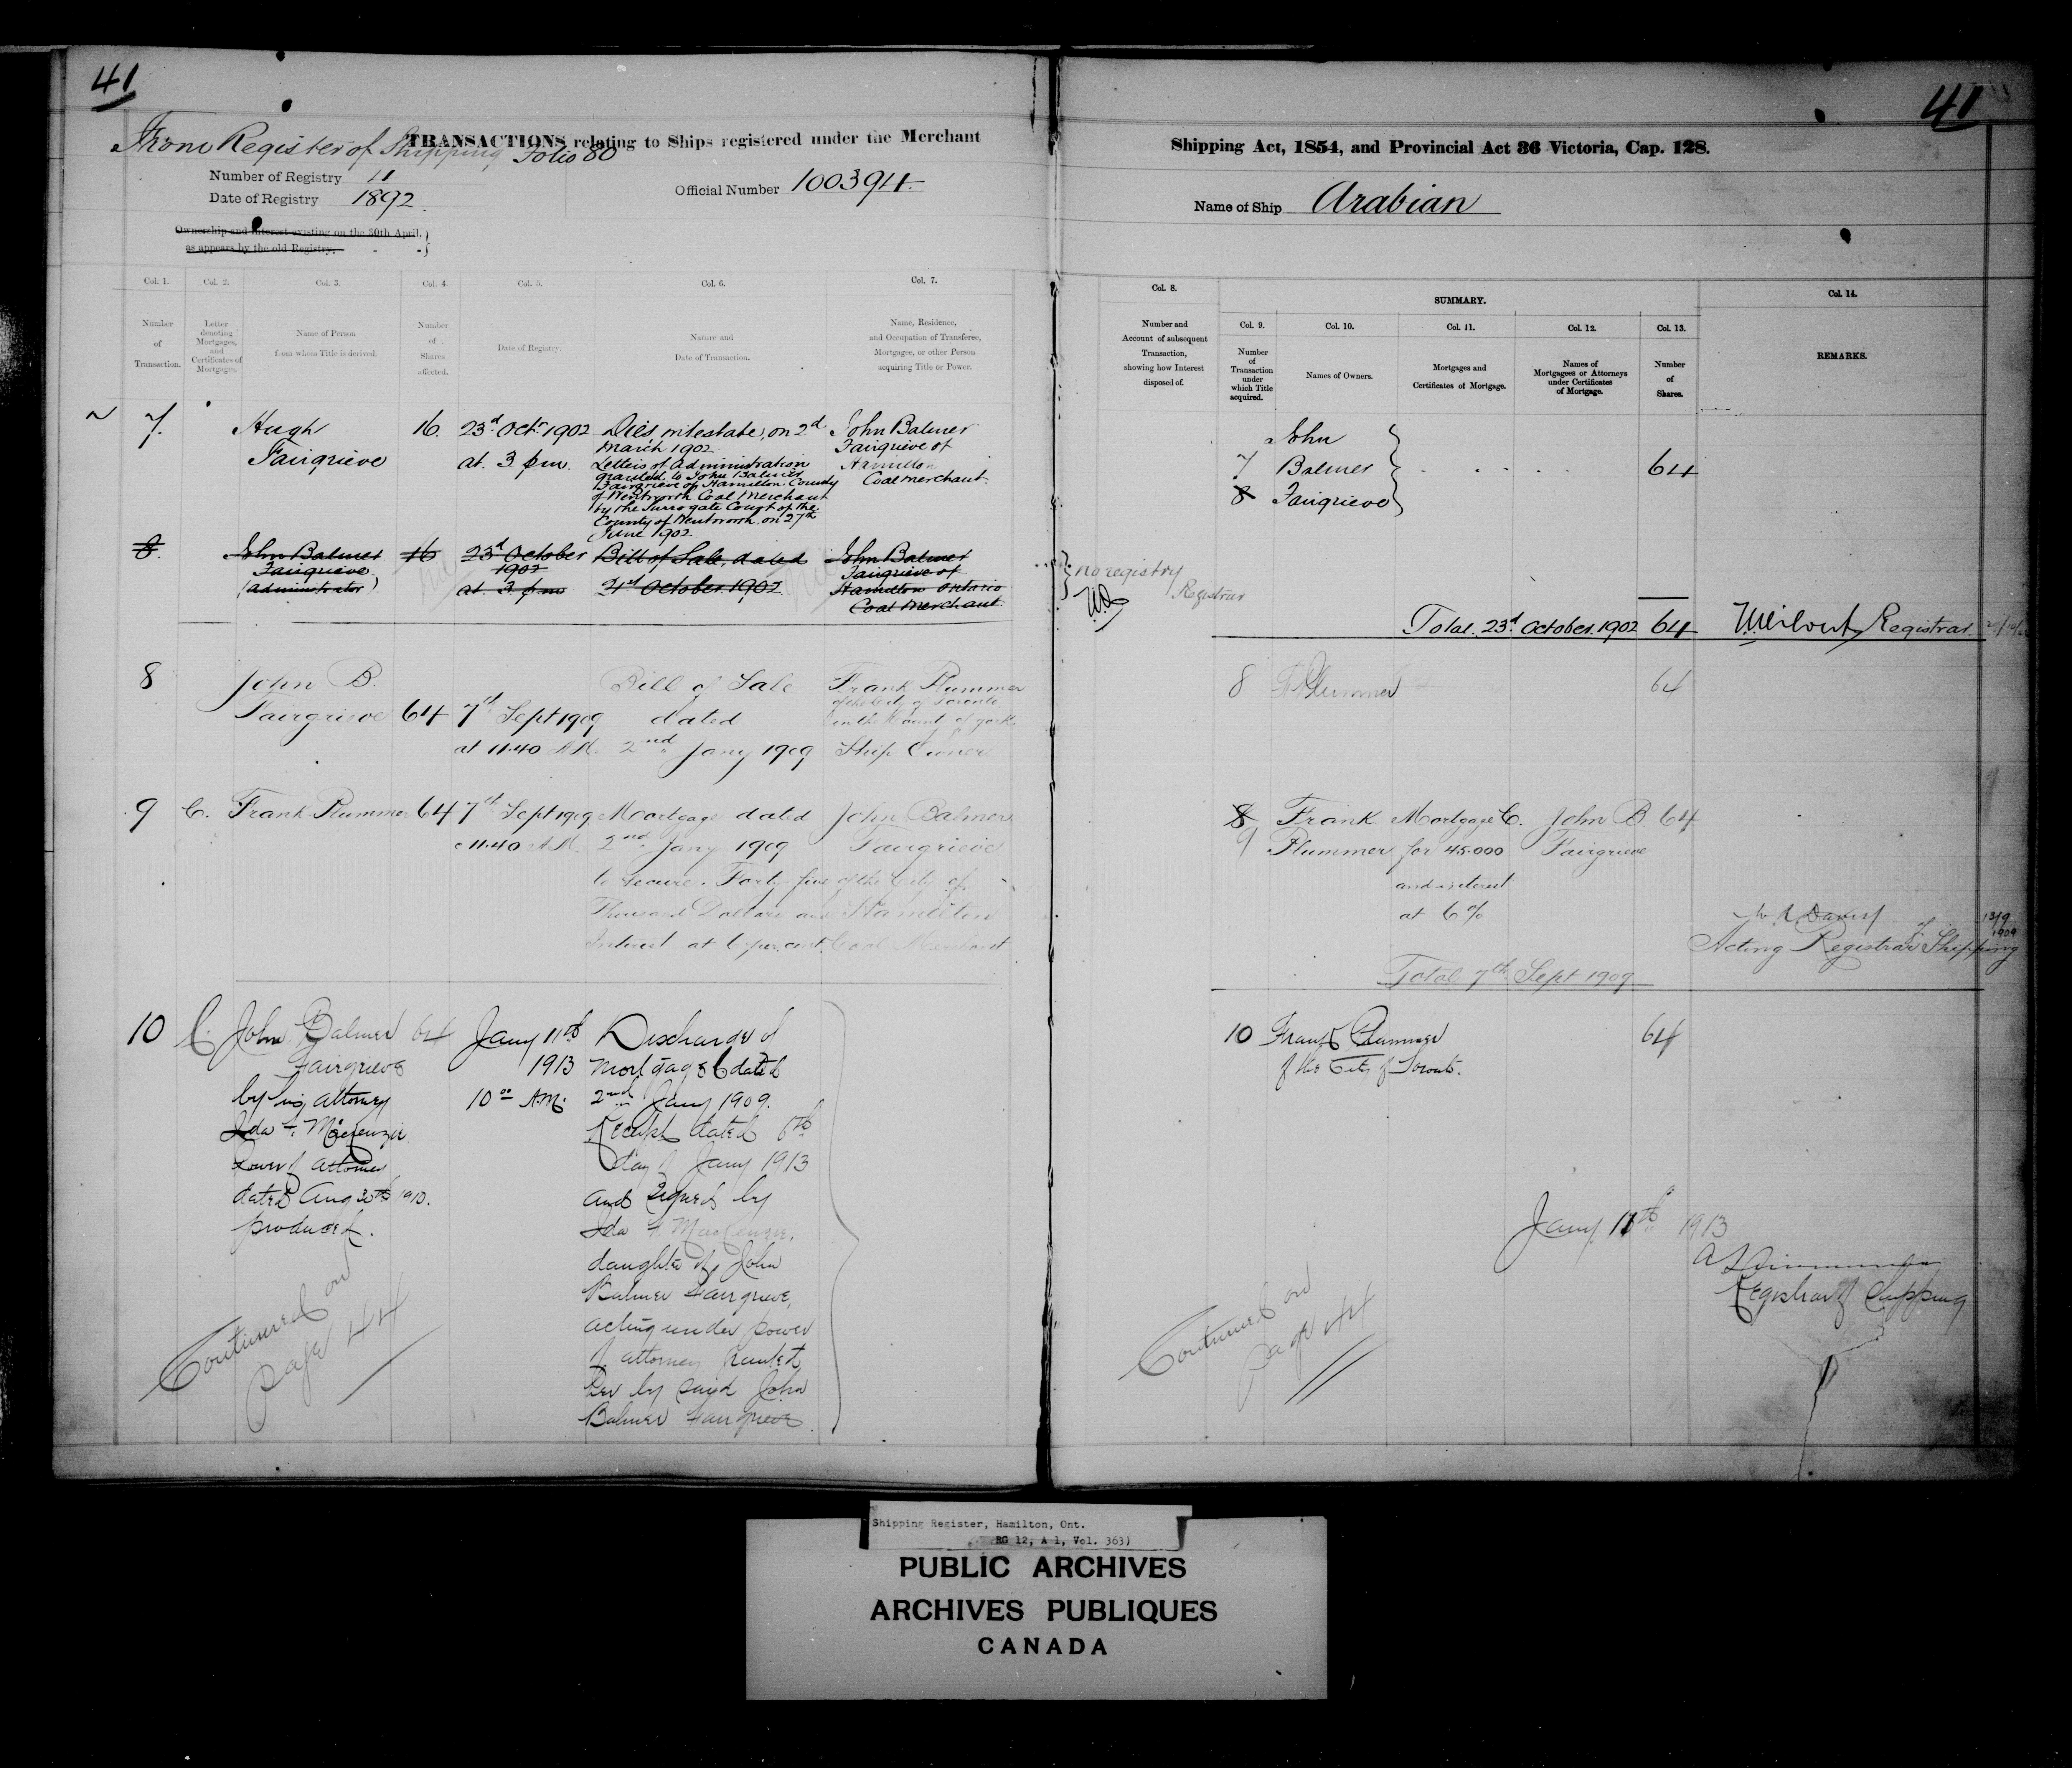 41
From Register of Shipping Folio 80
TRANSACTIONS relating to Ships registered under the Merchant
Number of Registry 11
Date of Registry 1892
Official Number 100394
Ownership and Interest existing on the 30th April,
as appears by the old Registry.
Col. 1.
Number
of
Transaction.
Col. 2.
Letter
denoting
Mortgages,
and
Certificates of
Mortgages.
Col. 3.
Name of Person
from whom Title is derived.
Col. 4.
Number
of
Shares
affected.
Col. 5.
Date of Registry.
Col. 6.
Nature and
Date of Transaction.
Col. 7.
Name, Residence,
and Occupation of Transferee,
Mortgagee, or other Person
acquiring Title or Power.
7.
Hugh
Fairgrieve
16.
23rd Octr 1902
at 3 pm.
Dies intestate, on 2nd
March 1902
Letters of Administration
granted to John Balmer
Fairgrieve of Hamilton County
of Wentworth Coal Merchant
by the Surrogate Court of the
County of Wentworth, on 27th
June 1902.
John Balmer
Fairgrieve of
Hamilton
Coal Merchant.
8.
John Balmer
Fairgrieve
(Administrator)
16
23rd October
1902
at 3 pm
Bill of Sale, dated
21st October 1902
John Balmer
Fairgrieve of
Hamilton Ontario
Coal Merchant.
8
John B.
Fairgrieve
64
7th Sept 1909
at 11.40 A.M.
Bill of Sale
dated
2nd Jany 1909
Frank Plummer
of the City of Toronto
in the Count of York
Ship Owner
9
C.
Frank Plummer
64
7th Sept 1909
11.40 A.M.
Mortgage dated
2nd Jany 1909
to secure Forty five
Thousand Dollars and
Interest at 6 per cent.
John Balmer
Fairgrieve
of the City of
Hamilton
Coal Merchant
10
C.
John Balmer
Fairgrieve
by his attorney
Ida F. MacKenzie
Power of Attorney
dated Aug 30th 1910.
produced.
64
Jany 11th
1913
10 00 A.M.
Discharge of
Mortgage C dated
2nd Jany 1909.
Receipt dated 6th
day of Jany 1913
and signed by
Ida F. MacKenzie,
daughter of John
Balmer Fairgrieve,
acting under power
of attorney granted
her by said John
Balmer Fairgrieve.
Continued on
page 44
41
Shipping Act, 1854, and Provincial Act 36 Victoria, Cap. 128.
Name of Ship Arabian
Col. 8.
Number and
Account of subsequent
Transaction,
showing how Interest
disposed of.
SUMMARY.
Col. 9.
Number
of
Transaction
under
which Title
acquired.
Col. 10.
Names of Owners.
Col. 11.
Mortgages and
Certificates of Mortgage.
Col. 12.
Names of
Mortgagees or Attorneys
under Certificates
of Mortgage.
Col. 13.
Number
of
Shares.
Col. 14.
REMARKS.
7
8
John
Balmer
Fairgrieve
64
no registry
Registrar
Total 23rd October 1902 64
Registrar
8
F. Plummer
64
8
9
Frank
Plummer
Mortgage C.
for 45.000
and interest
at 6%
John B.
Fairgrieve
64
13/9
1909
Acting Registrar of Shipping
Total 7th Sept 1909
10
Frank Plummer
of the City of Toronto.
64
Jany 11th 1913
Registrar of Shipping
Continued on
page 44
Shipping Register, Hamilton, Ont.
RG 12, A 1, Vol. 363)
PUBLIC ARCHIVES
ARCHIVES PUBLIQUES
CANADA